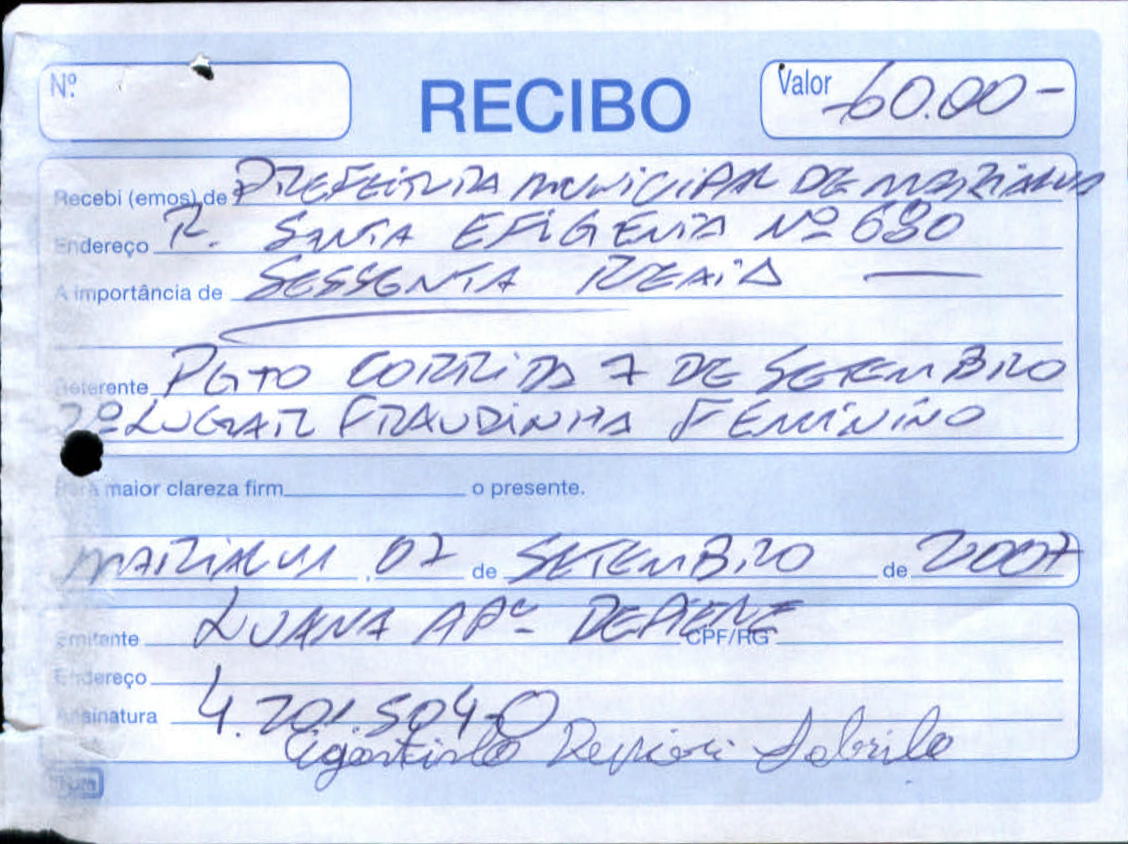 Nº
RECIBO
Valor -60.00-
Recebi (emos) de PREFEITURA MUNICIPAL DE MARIALVA
Endereço R. SANTA EFIGENIA Nº 680
A importância de SESSENTA REAIS
Referente PGTO CORRIDA 7 DE SETEMBRO
LUGAR FRAUDINHA FEMININO
Para maior clareza firm o presente.
MARIALVA, 07 de SETEMBRO de 2007
Emitente LUANA APª CPF/RG
Endereço
Assinatura 4.201.504-0